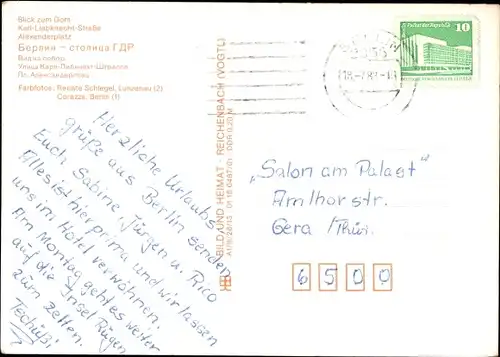 Blick zum Dom
Karl-Liebknecht-Straße
Alexanderplatz
Берлин – столица ГДР
Вид на собор
Улица Карл-Либкнехт-Штрассе
Пл. Александерплац
Farbfotos: Renate Schlegel, Lunzenau (2)
Corazza, Berlin (1)
BILD UND HEIMAT REICHENBACH (VOGTL)
Palast der Republik
10
Herzliche Urlaubs-
grüße aus Berlin senden
Euch Sabine, Jürgen u. Rico
Alles ist hier prima und wir lassen
uns im Hotel verwöhnen.
Am Montag geht es weiter
auf die Insel Rügen
zum Zelten.
Tschüßi
„Salon am Palast"
Amthorstr.
Gera/Thür.
6500